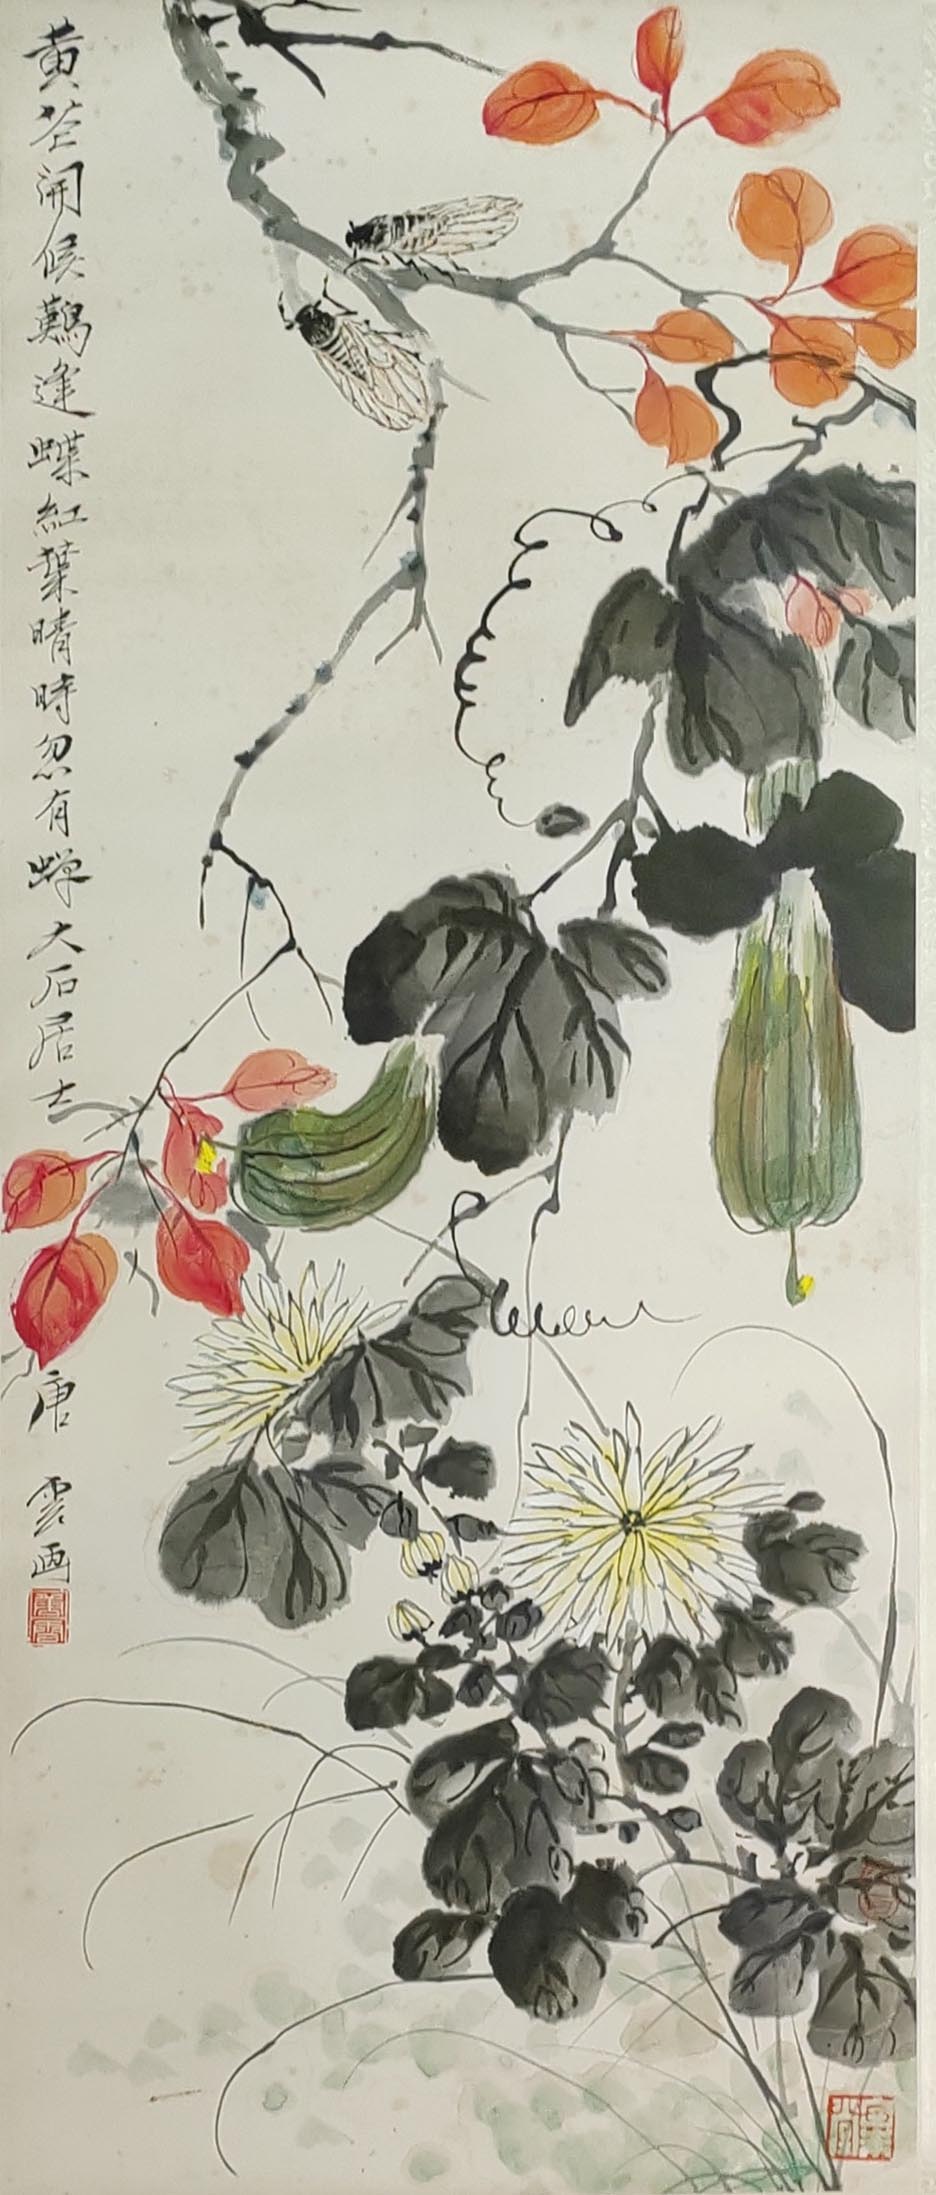 黄花開候難逢蝶紅葉晴時忽有蟬大石居士
唐雲画
唐雲